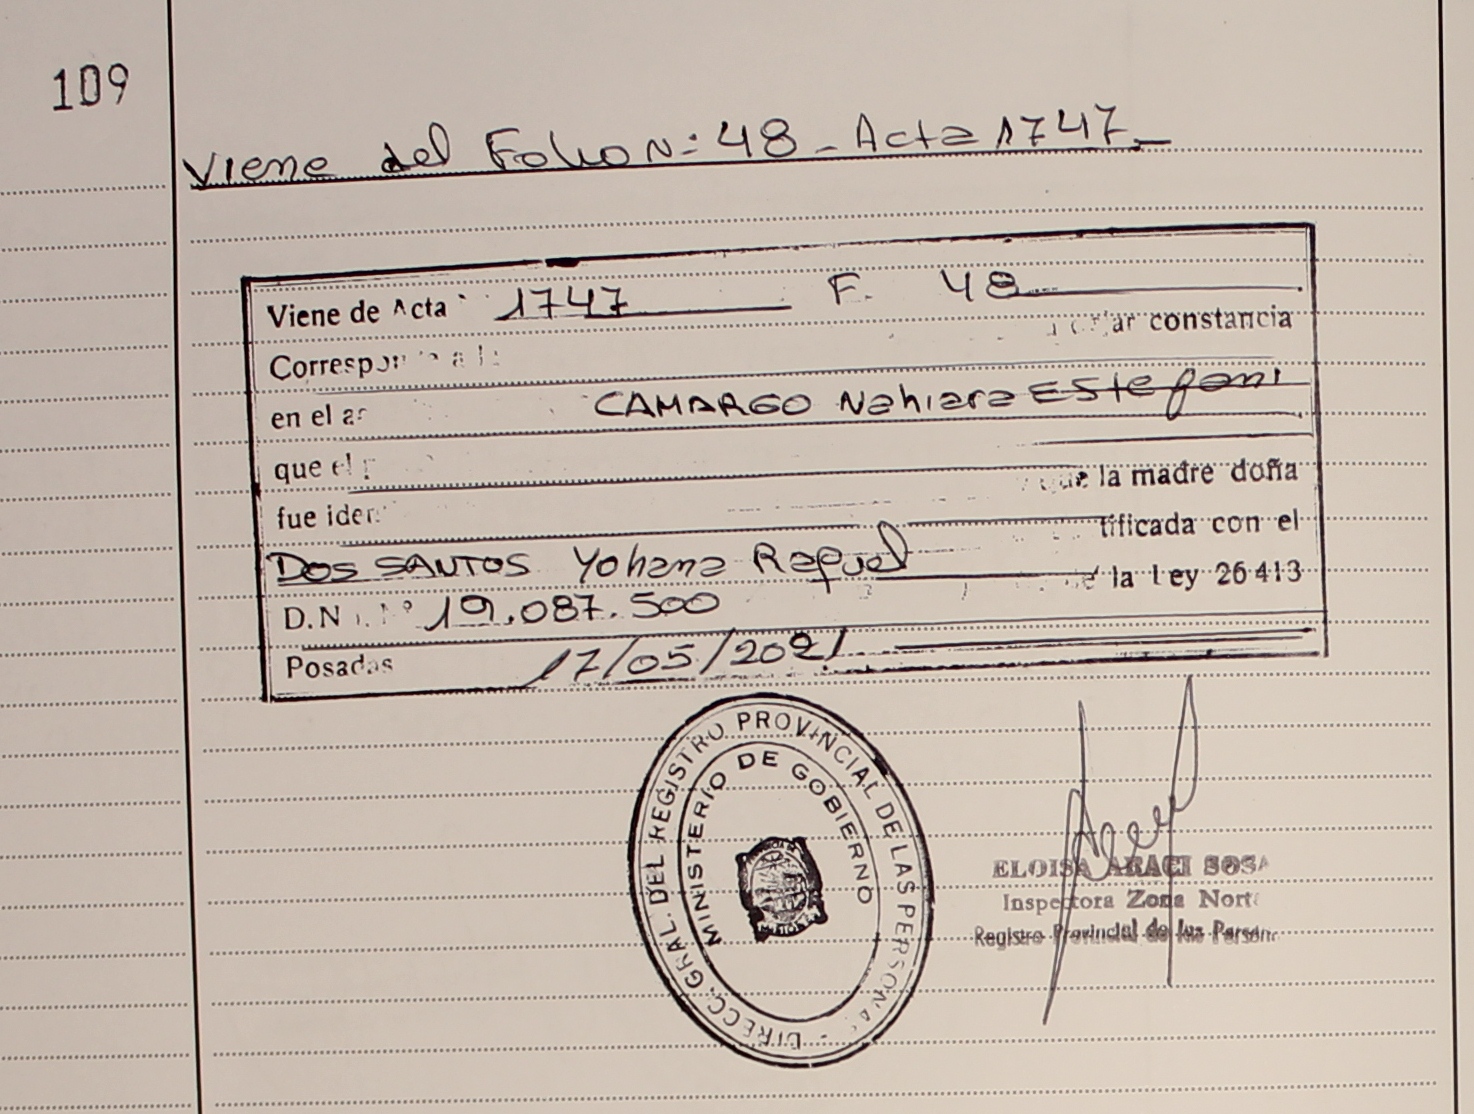 109
Viene del Folio N: 48 - Acta 1747.-
Viene de Acta 1747 F. 48
constancia
en el CAMARGO Nahiara Estefani
que el
la madre doña
fue
con el
DOS SANTOS Yohana Raquel
la Ley 26413
D.N 19.087.500
Posadas 17/05/2021
DIRECC. GRAL. DEL REGISTRO PROVINCIAL DE LAS PERSONAS
MINISTERIO DE GOBIERNO
ELOISA ARACI SOSA
Inspectora Zona Norte
Registro Provincial de las Person